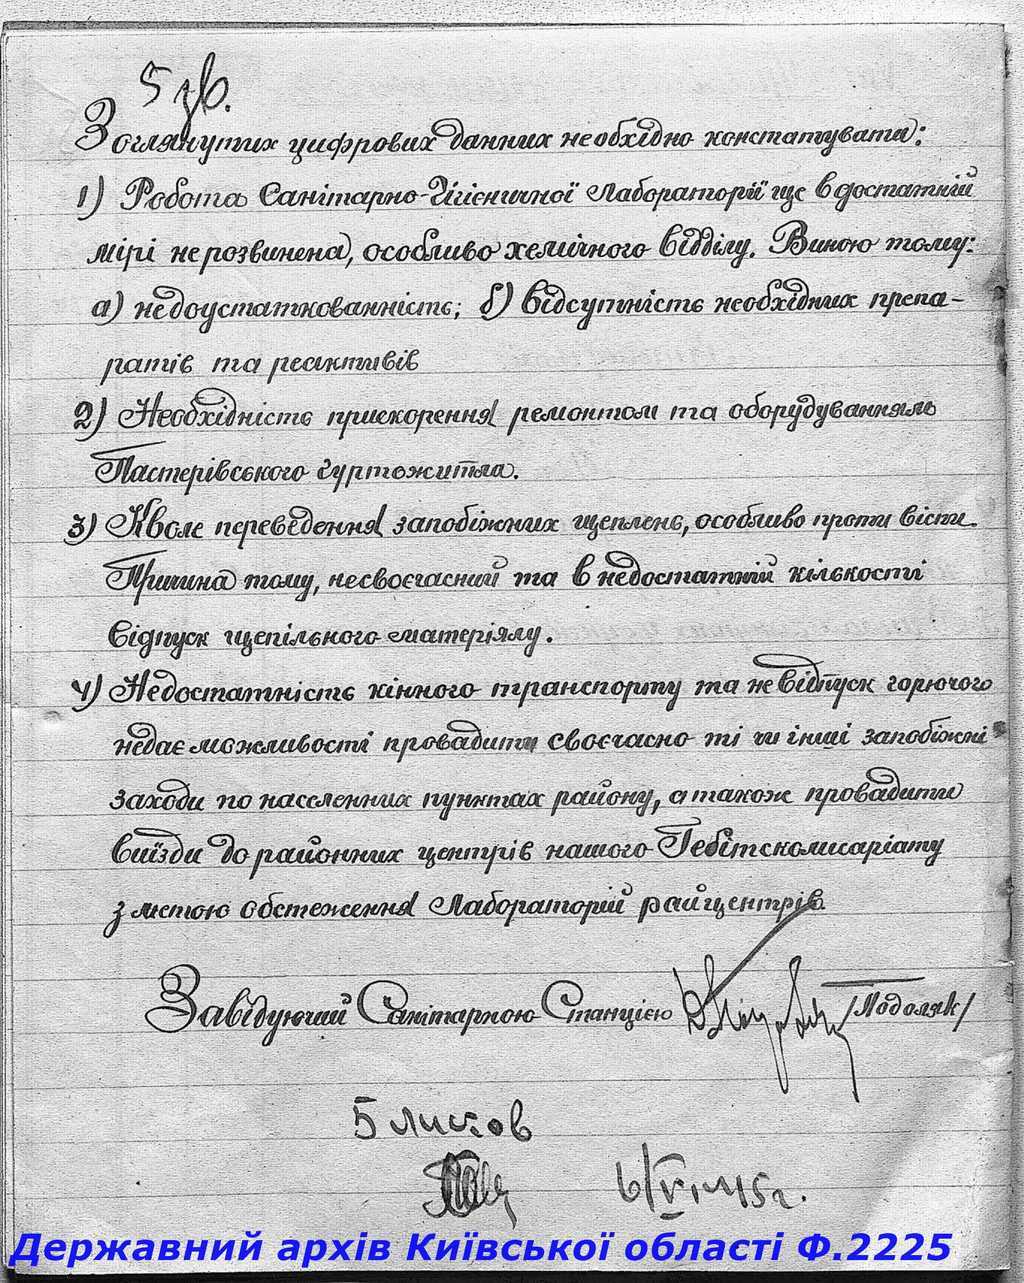 5 зв.
З оглянутих цифрових данних необхідно констатувати:
1) Робота Санітарно-Гігієничної Лабораторії ще в достатній
мірі не розвинена, особливо хемічного відділу. Виною тому:
а) недоустаткованність; б) відсутність необхідних препа-
ратів та реактивів
2) Необхідність прискорення ремонтом та оборудуванням
Пастерівського гуртожитла.
3) Кволе переведення запобіжних щеплень, особливо проти вісти.
Причина тому, несвоєчасний та в недостатній кількості
відпуск щепільного матеріялу.
4) Недостатність кінного транспорту та не відпуск горючого
недає можливості провадити своєчасно ті чи інші запобіжні
заходи по населенних пунктах району, а також провадити
виїзди до районних центрів нашого Гебітскомісаріату
з метою обстеження Лабораторій райцентрів
Завідуючий Санітарною Станцією /Подоляк/
5 листов
6/VI-45г.
Державний архів Київської області Ф.2225